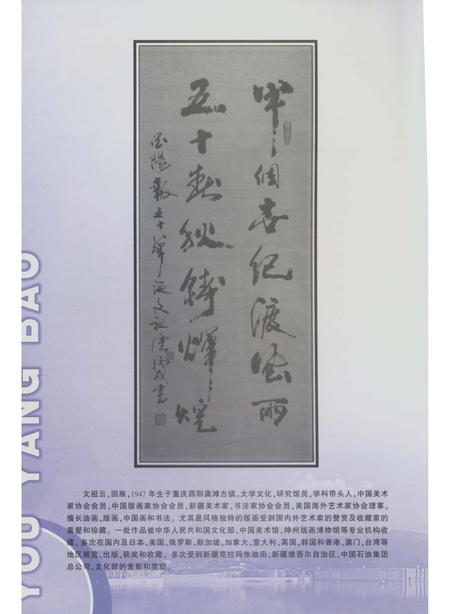 半个世纪渡风雨
五十春秋铸辉煌
酉阳报五十年诞文祖云
YOU YANG BAO
文祖云,回族,1947年生于重庆酉阳龚滩古镇。大学文化,研究馆员,学科带头人。中国美术
家协会会员,中国版画家协会会员,新疆美术家、书法家协会会员,美国海外艺术家协会理事。
擅长油画,版画,中国画和书法。尤其是风格独特的版画受到国内外艺术家的赞赏及收藏家的
喜爱和珍藏。一批作品被中华人民共和国文化部、中国美术馆、神州版画博物馆等专业机构收
藏。多次在国内及日本、美国、俄罗斯、新加坡、加拿大、意大利、英国、韩国和香港、澳门、台湾等
地区展览、出版、获奖和收藏。多次受到新疆克拉玛依油田、新疆维吾尔自治区、中国石油集团
总公司、文化部的表彰和奖励。